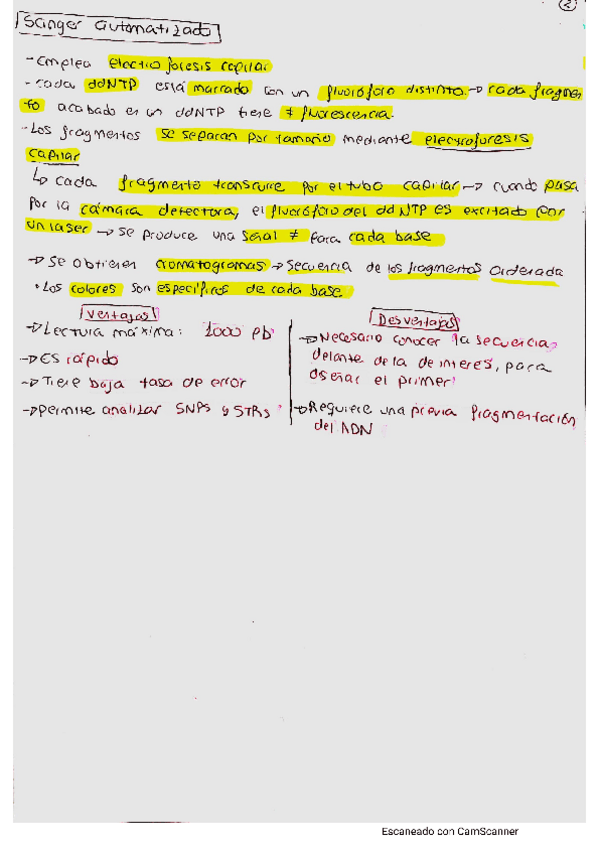 2
Sanger automatizado
- Emplea electroforesis capilar
- Cada ddNTP está marcado con un fluoróforo distinto → cada fragmen
to acabado en un ddNTP tiene ≠ fluorescencia.
- Los fragmentos se separan por tamaño mediante electroforesis
capilar
↳ cada fragmento transcurre por el tubo capilar → cuando pasa
por la cámara detectora, el fluoróforo del ddNTP es excitado por
un laser → se produce una señal ≠ para cada base
→ Se obtienen cromatogramas → secuencia de los fragmentos ordenada
• Los colores son específicos de cada base
Ventajas
→ Lectura máxima: 1000 pb
→ ES rápido
→ Tiene baja tasa de error
→ permite analizar SNPs y STRs
Desventajas
→ Necesario conocer la secuencia
delante de la de interes, para
diseñar el primer
→ Requiere una previa fragmentación
del ADN
Escaneado con CamScanner